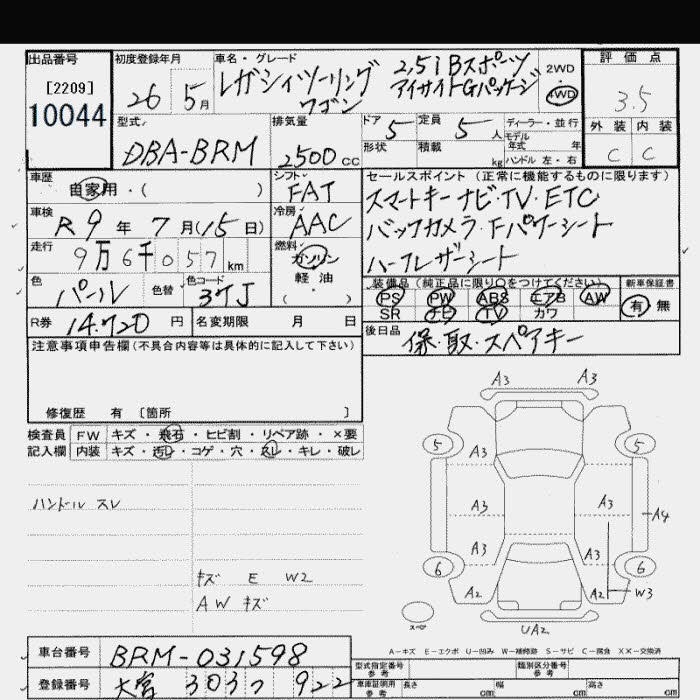 出品番号 初度登録年月 車名・グレード 評価点
[2209] 26 5月 レガシィツーリング 2,5i Bスポーツ 2WD
10044 ワゴン アイサイトGパッケージ 4WD 3.5
型式 排気量 ドア 定員 ディーラー・並行 外装 内装
DBA-BRM 2500cc 5 5人 モデル年式 年 C C
形状 積載 kg ハンドル 左・右
車歴 自家用・( ) シフト セールスポイント(正常に機能するものに限ります)
FAT スマートキー ナビ・TV・ETC
車検 R9年7月(15日) 冷房 AAC バックカメラ・Fパワーシート
走行 9万6千057km 燃料 ガソリン ハーフレザーシート
軽油
( ・ )
色 パール 色替 色コード 37J 装備品(純正品に限り○をつけてください) 新車保証書
PS PW ABS エアB AW 有 無
SR ナビ TV カワ
R券 14.720円 名変期限 月 日 後日品 保・取・スペアキー
注意事項申告欄(不具合内容等は具体的に記入して下さい)
修復歴 有 [箇所 ]
検査員 FW キズ・飛石・ヒビ割・リペア跡・×要
記入欄 内装 キズ・汚れ・コゲ・穴・スレ・キレ・破レ
A3 A3
5 5
A3
ハンドル スレ
A3 A3 A4
A3 A3
6 6
キズ E W2
A2 A2 W3
AW キズ
スペア UA2
A-キズ E-エクボ U-凹み W-補修跡 S-サビ C-腐食 XX-交換済
車台番号 BRM-031598
型式指定番号 参考 類別区分番号 参考
登録番号 大宮 303 922
車庫証明用 参考 長さ cm 幅 cm 高さ cm